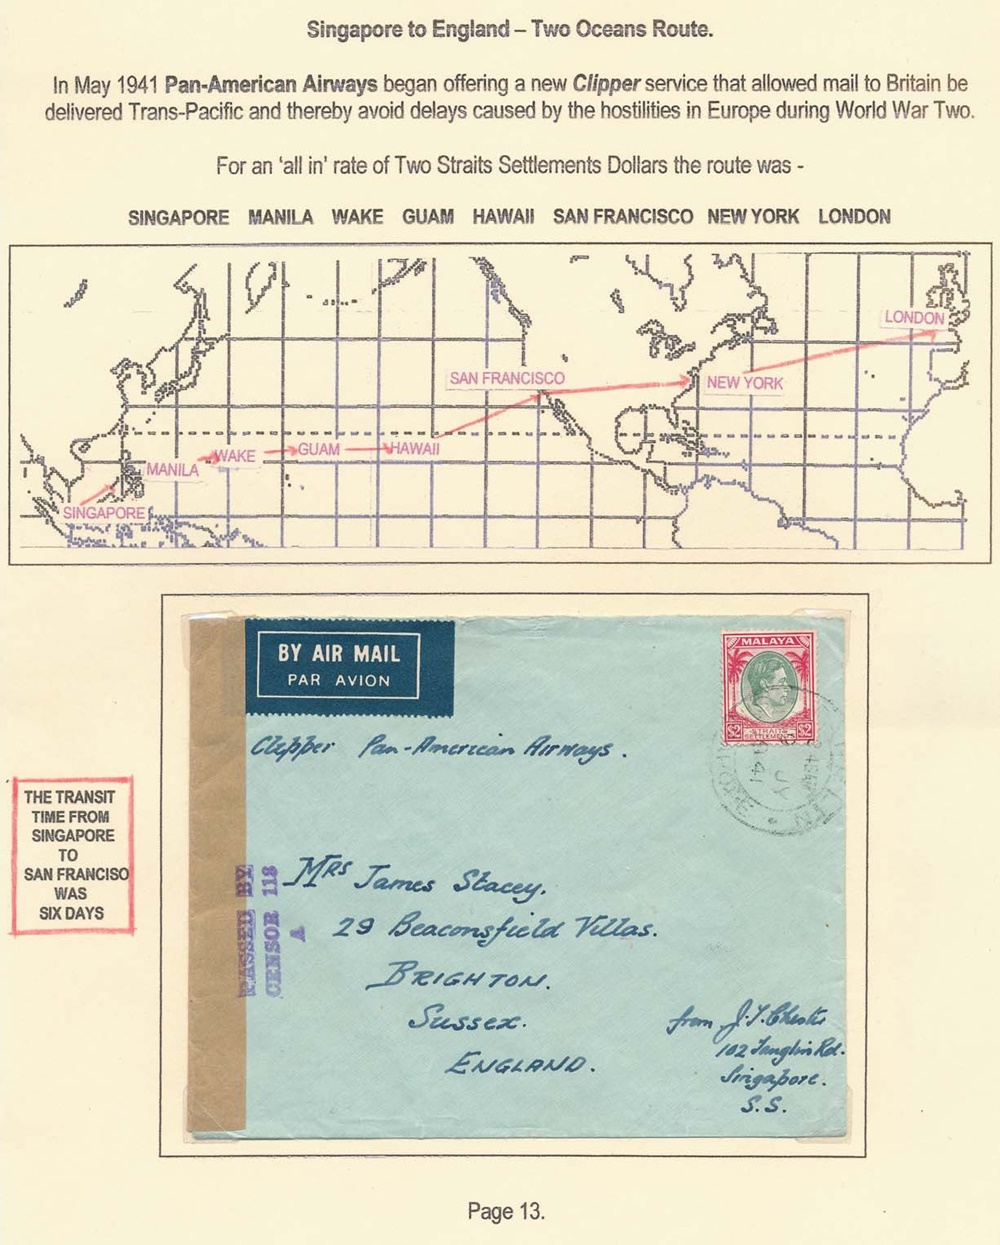 Singapore to England – Two Oceans Route.
In May 1941 Pan-American Airways began offering a new Clipper service that allowed mail to Britain be
delivered Trans-Pacific and thereby avoid delays caused by the hostilities in Europe during World War Two.
For an 'all in' rate of Two Straits Settlements Dollars the route was -
SINGAPORE MANILA WAKE GUAM HAWAII SAN FRANCISCO NEW YORK LONDON
LONDON
SAN FRANCISCO
NEW YORK
HAWAII
GUAM
WAKE
MANILA
SINGAPORE
BY AIR MAIL
PAR AVION
MALAYA
$2 STRAITS $2
SETTLEMENTS
JY
41
Clipper Pan-American Airways.
THE TRANSIT
TIME FROM
SINGAPORE
TO
SAN FRANCISO
WAS
SIX DAYS
PASSED BY
CENSOR 118
A
Mrs James Stacey.
29 Beaconsfield Villas.
BRIGHTON.
Sussex.
ENGLAND.
from J.T. Chester
102 Tanglin Rd.
Singapore.
S.S.
Page 13.